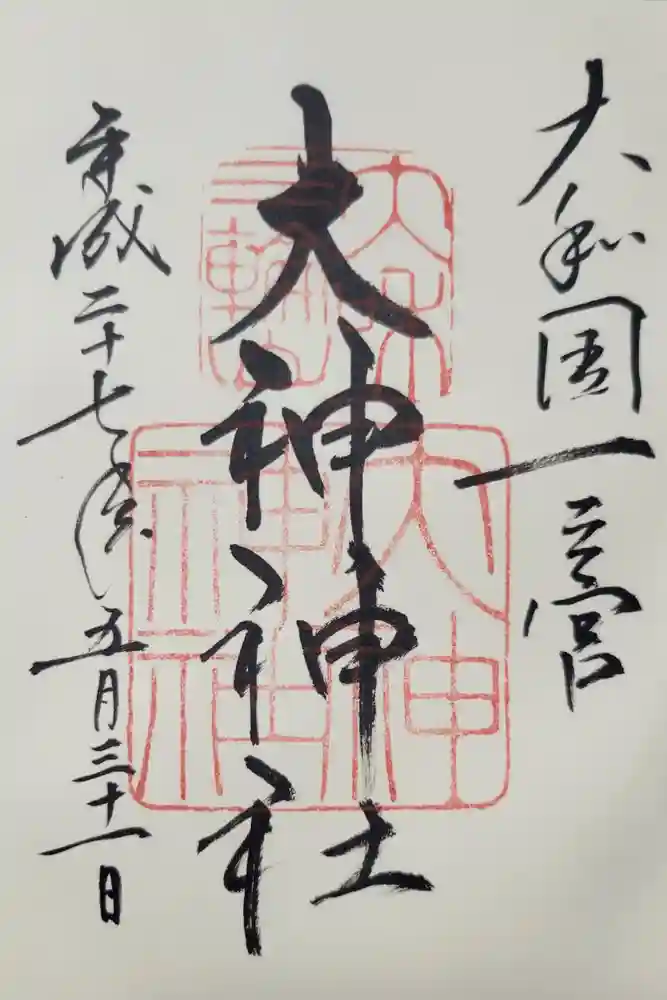 大和国一之宮
大神神社
平成二十七年五月三十一日
大神神社